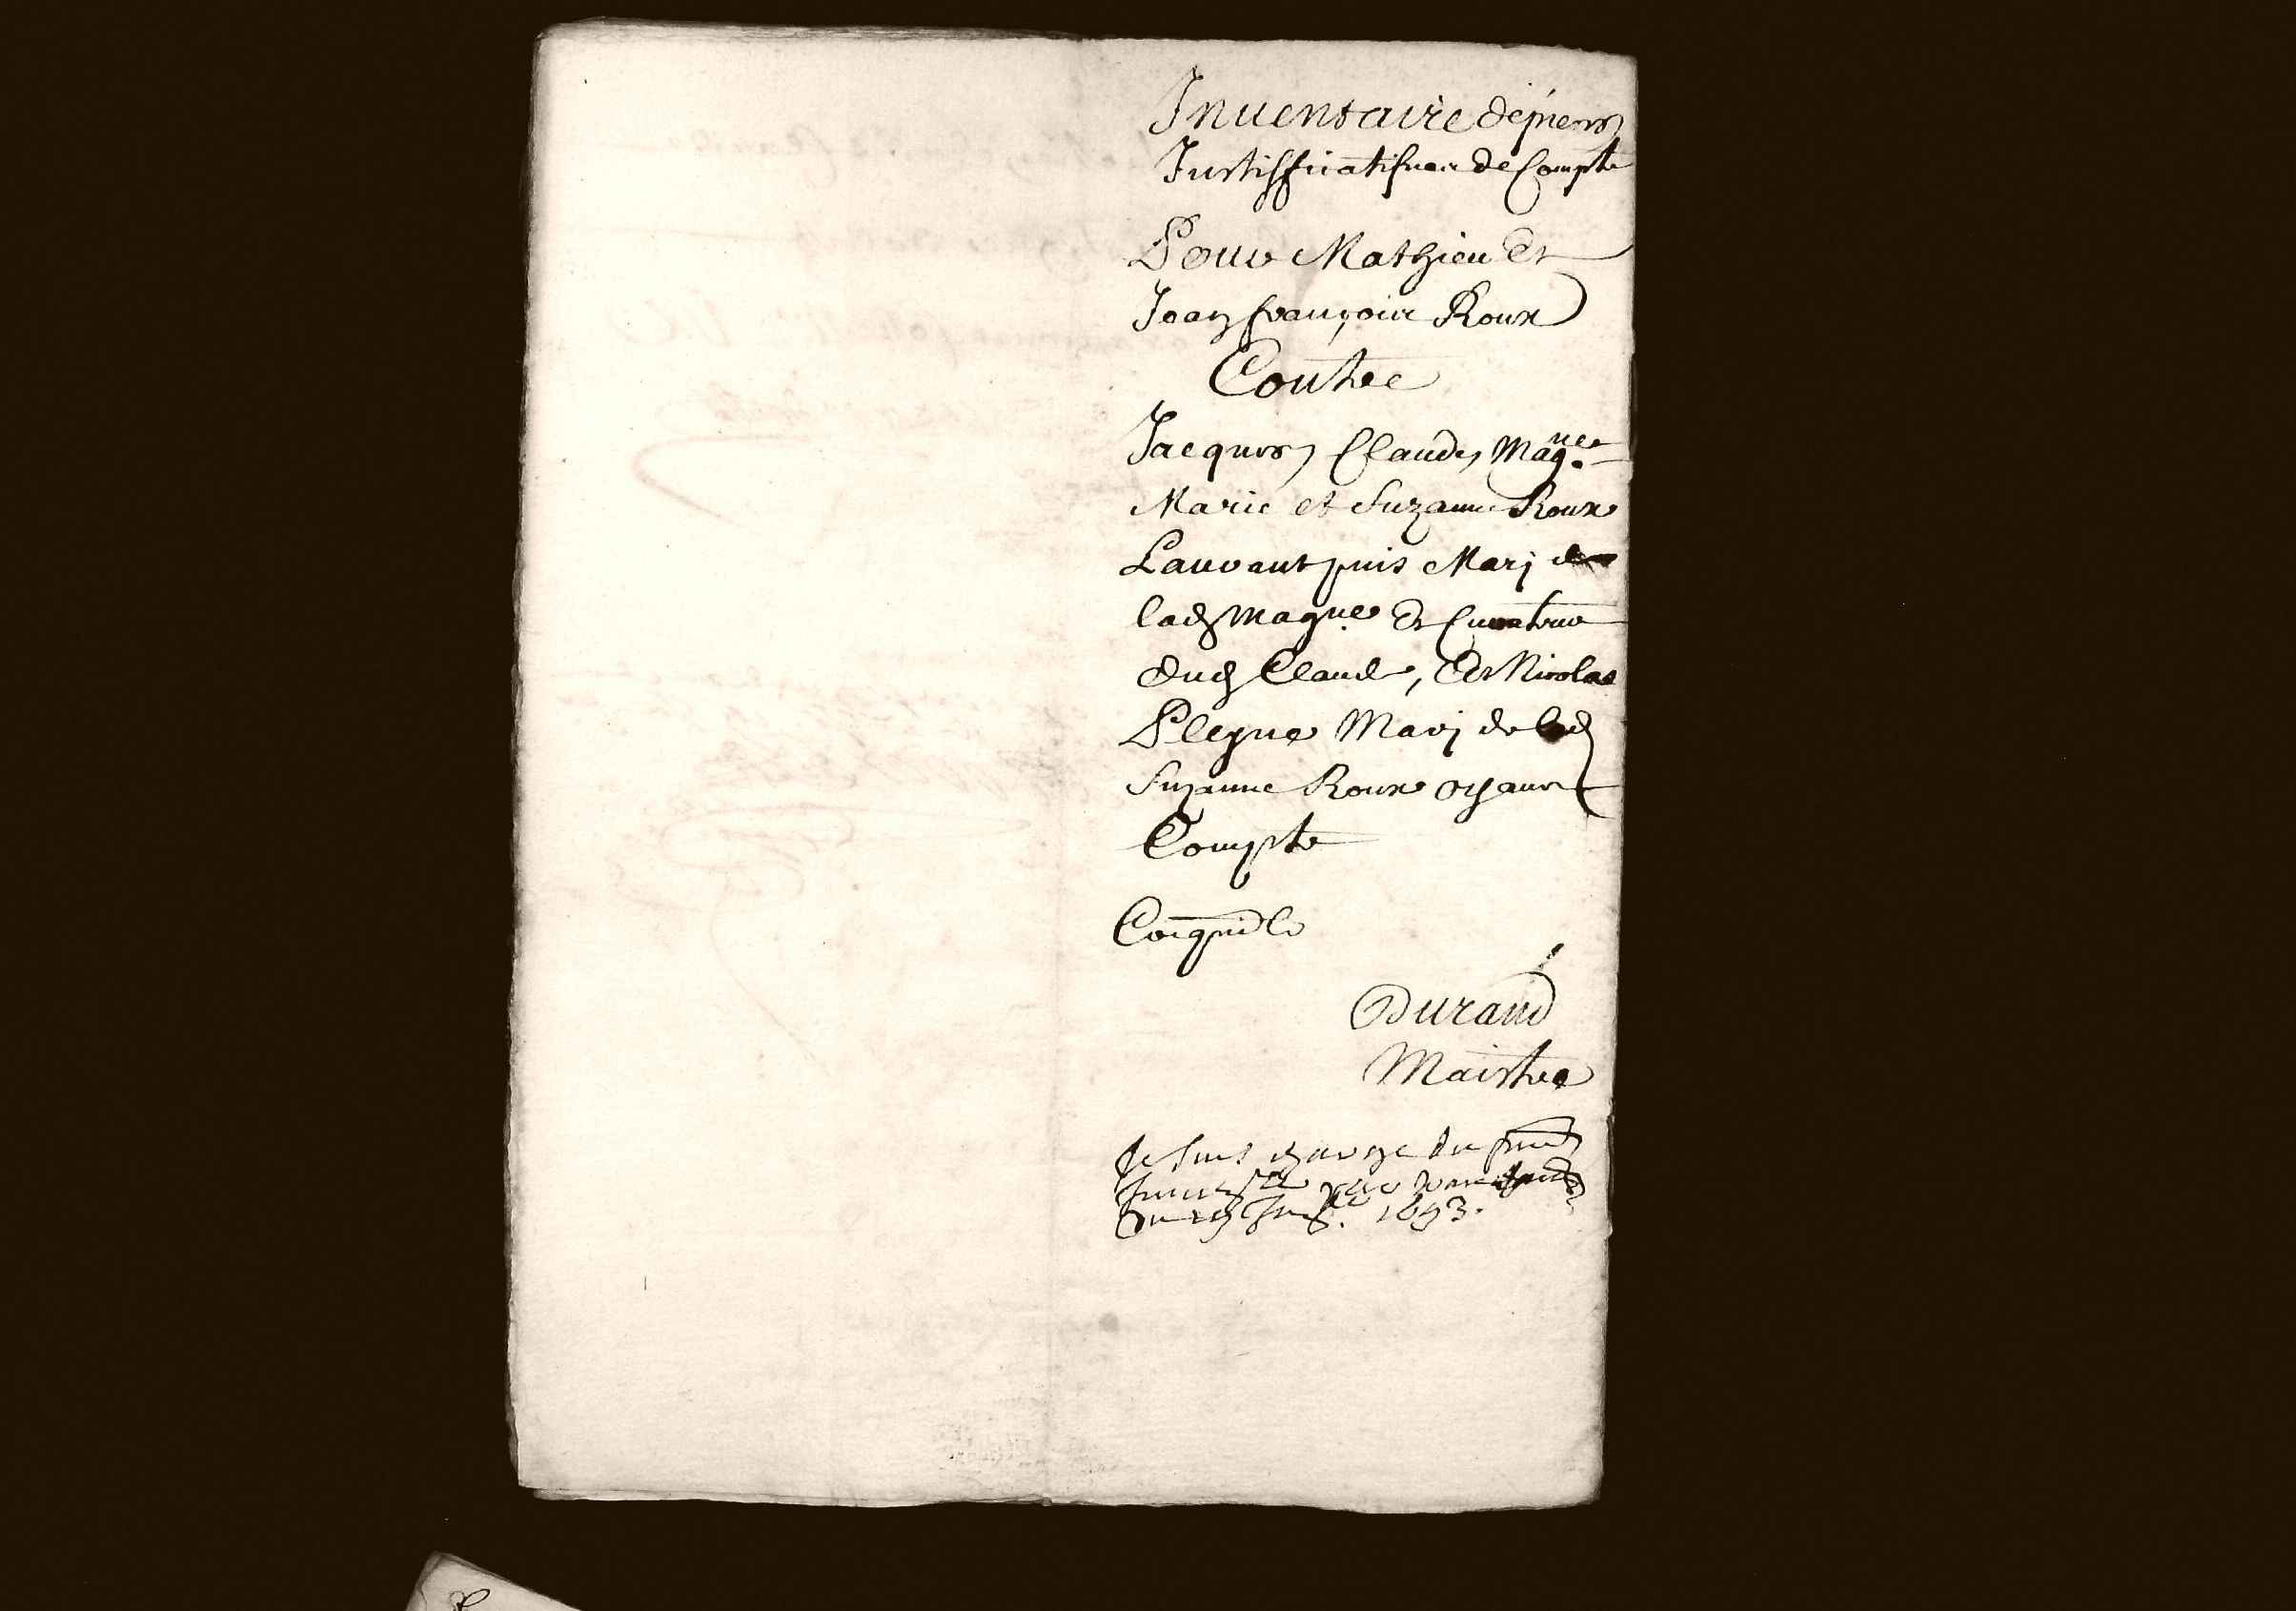 Inuentaire de pieces
Justifficatifues de Compte
Pour Mathieu Et
Jean françois Roux
Contre
Jacques, Claude, Magne
Marie et Suzanne Roux
Laurant puis Mary de
lad Magne Et Curateur
dud Claude, Et Nicolas
Plegne Mary de lad
Suzanne Roux oyant
Compte
Durand
Maistre
Je suis charge du pnt
1693.